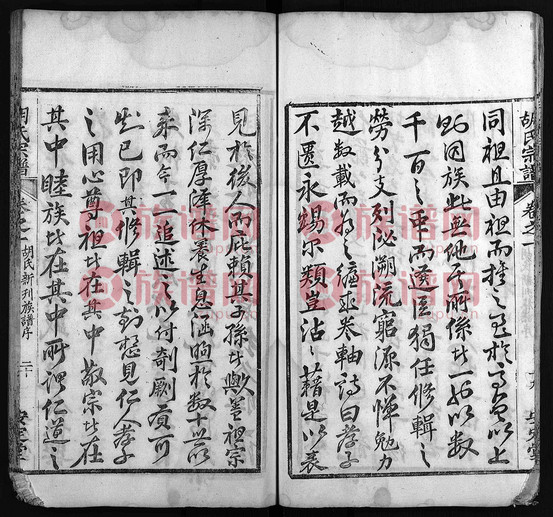 胡氏宗譜 卷之一
同祖且由祖而推之至於高曾以上
同族此無他所係一以数
千百之衆而遷臣獨任修輯之
勞分支列派溯流窮源不憚勉力
越数載而為之編束卷軸詩曰孝子
不匱永錫尔類豈沾沾藉是以表
見於後人而庇賴其子孫也與蓋祖宗
深仁厚澤休養生息涵昫於数十世
來而今一一追述之以付剞劂可
已即其修輯之勤想見仁人孝子
之用心尊祖者在其中敬宗者在
其中睦族者在其中所謂仁道之
胡氏宗譜 卷之一 胡氏新刊族譜序 二十 安定堂
族谱网
族谱网